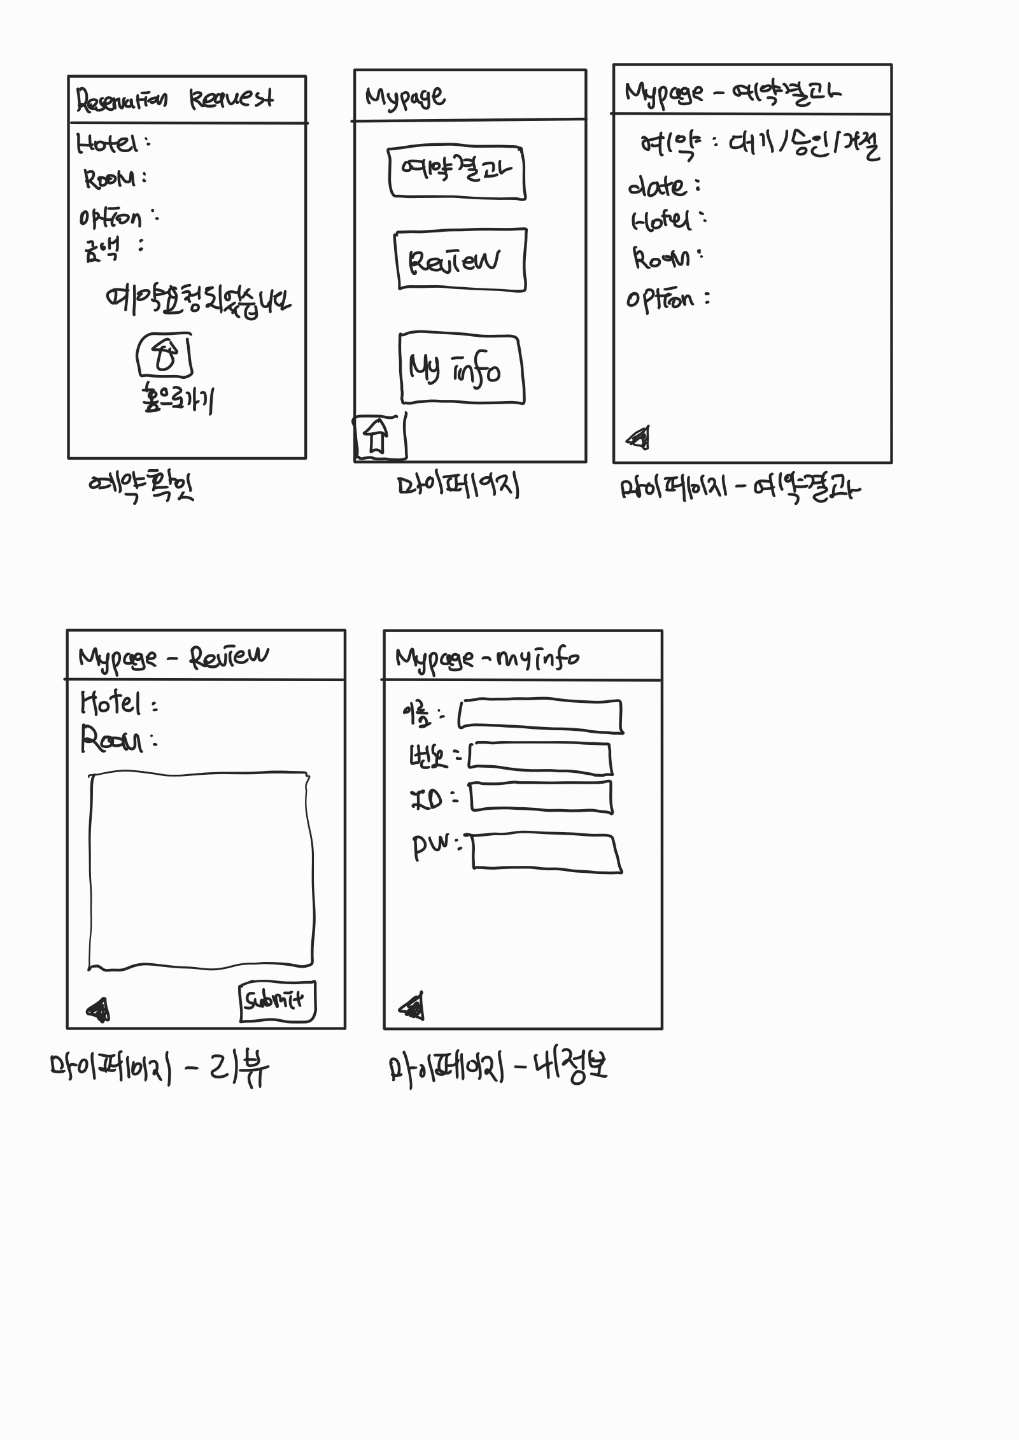 Reservation Request
Hotel :
Room :
option :
금액 :
예약요청되었습니다
홈으로가기
예약확인
Mypage
예약결과
Review
My info
마이페이지
Mypage - 예약결과
예약 : 대기/승인/거절
date :
Hotel :
Room :
option :
마이페이지 - 예약결과
Mypage - Review
Hotel :
Room :
Submit
마이페이지 - 리뷰
Mypage - my info
이름 :
번호 :
ID :
PW :
마이페이지 - 내정보